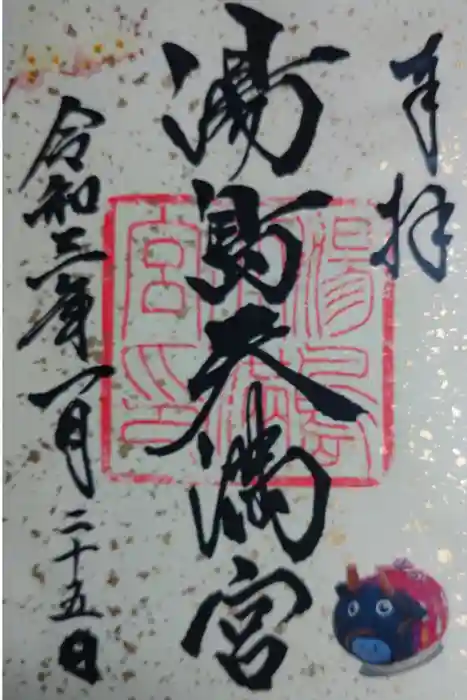 奉拝
湯島天満宮
令和三年一月二十五日
湯島天満宮印